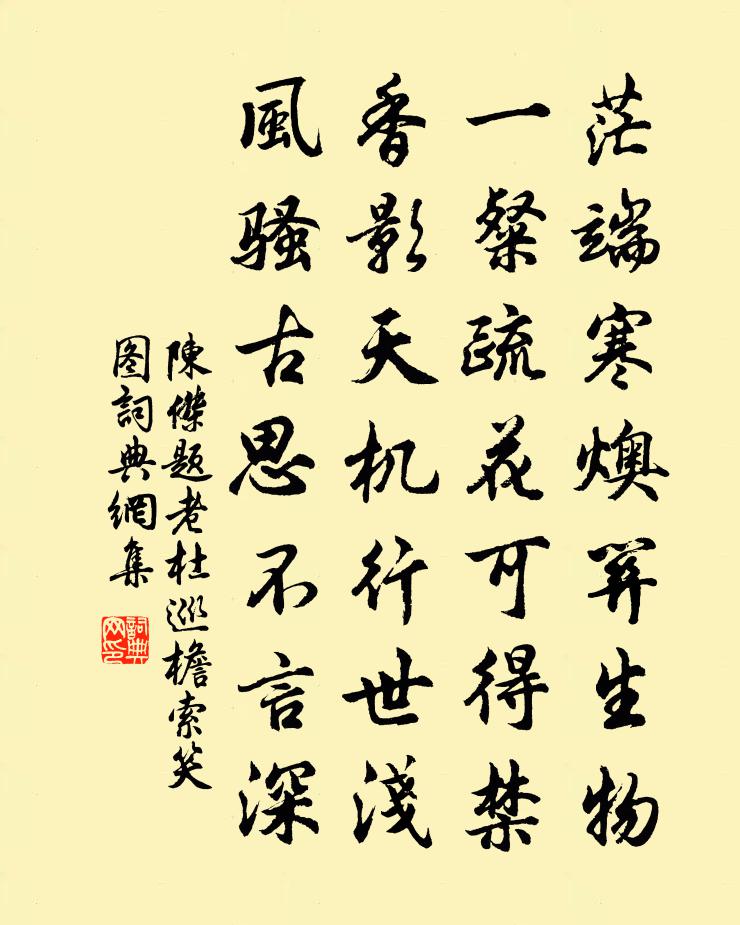 茫端寒燠羿生物
一粲疏花可得禁
香影天机行世淺
風騷古思不言深
陳傑題老杜巡檐索笑
图詞典網集
詞典网印